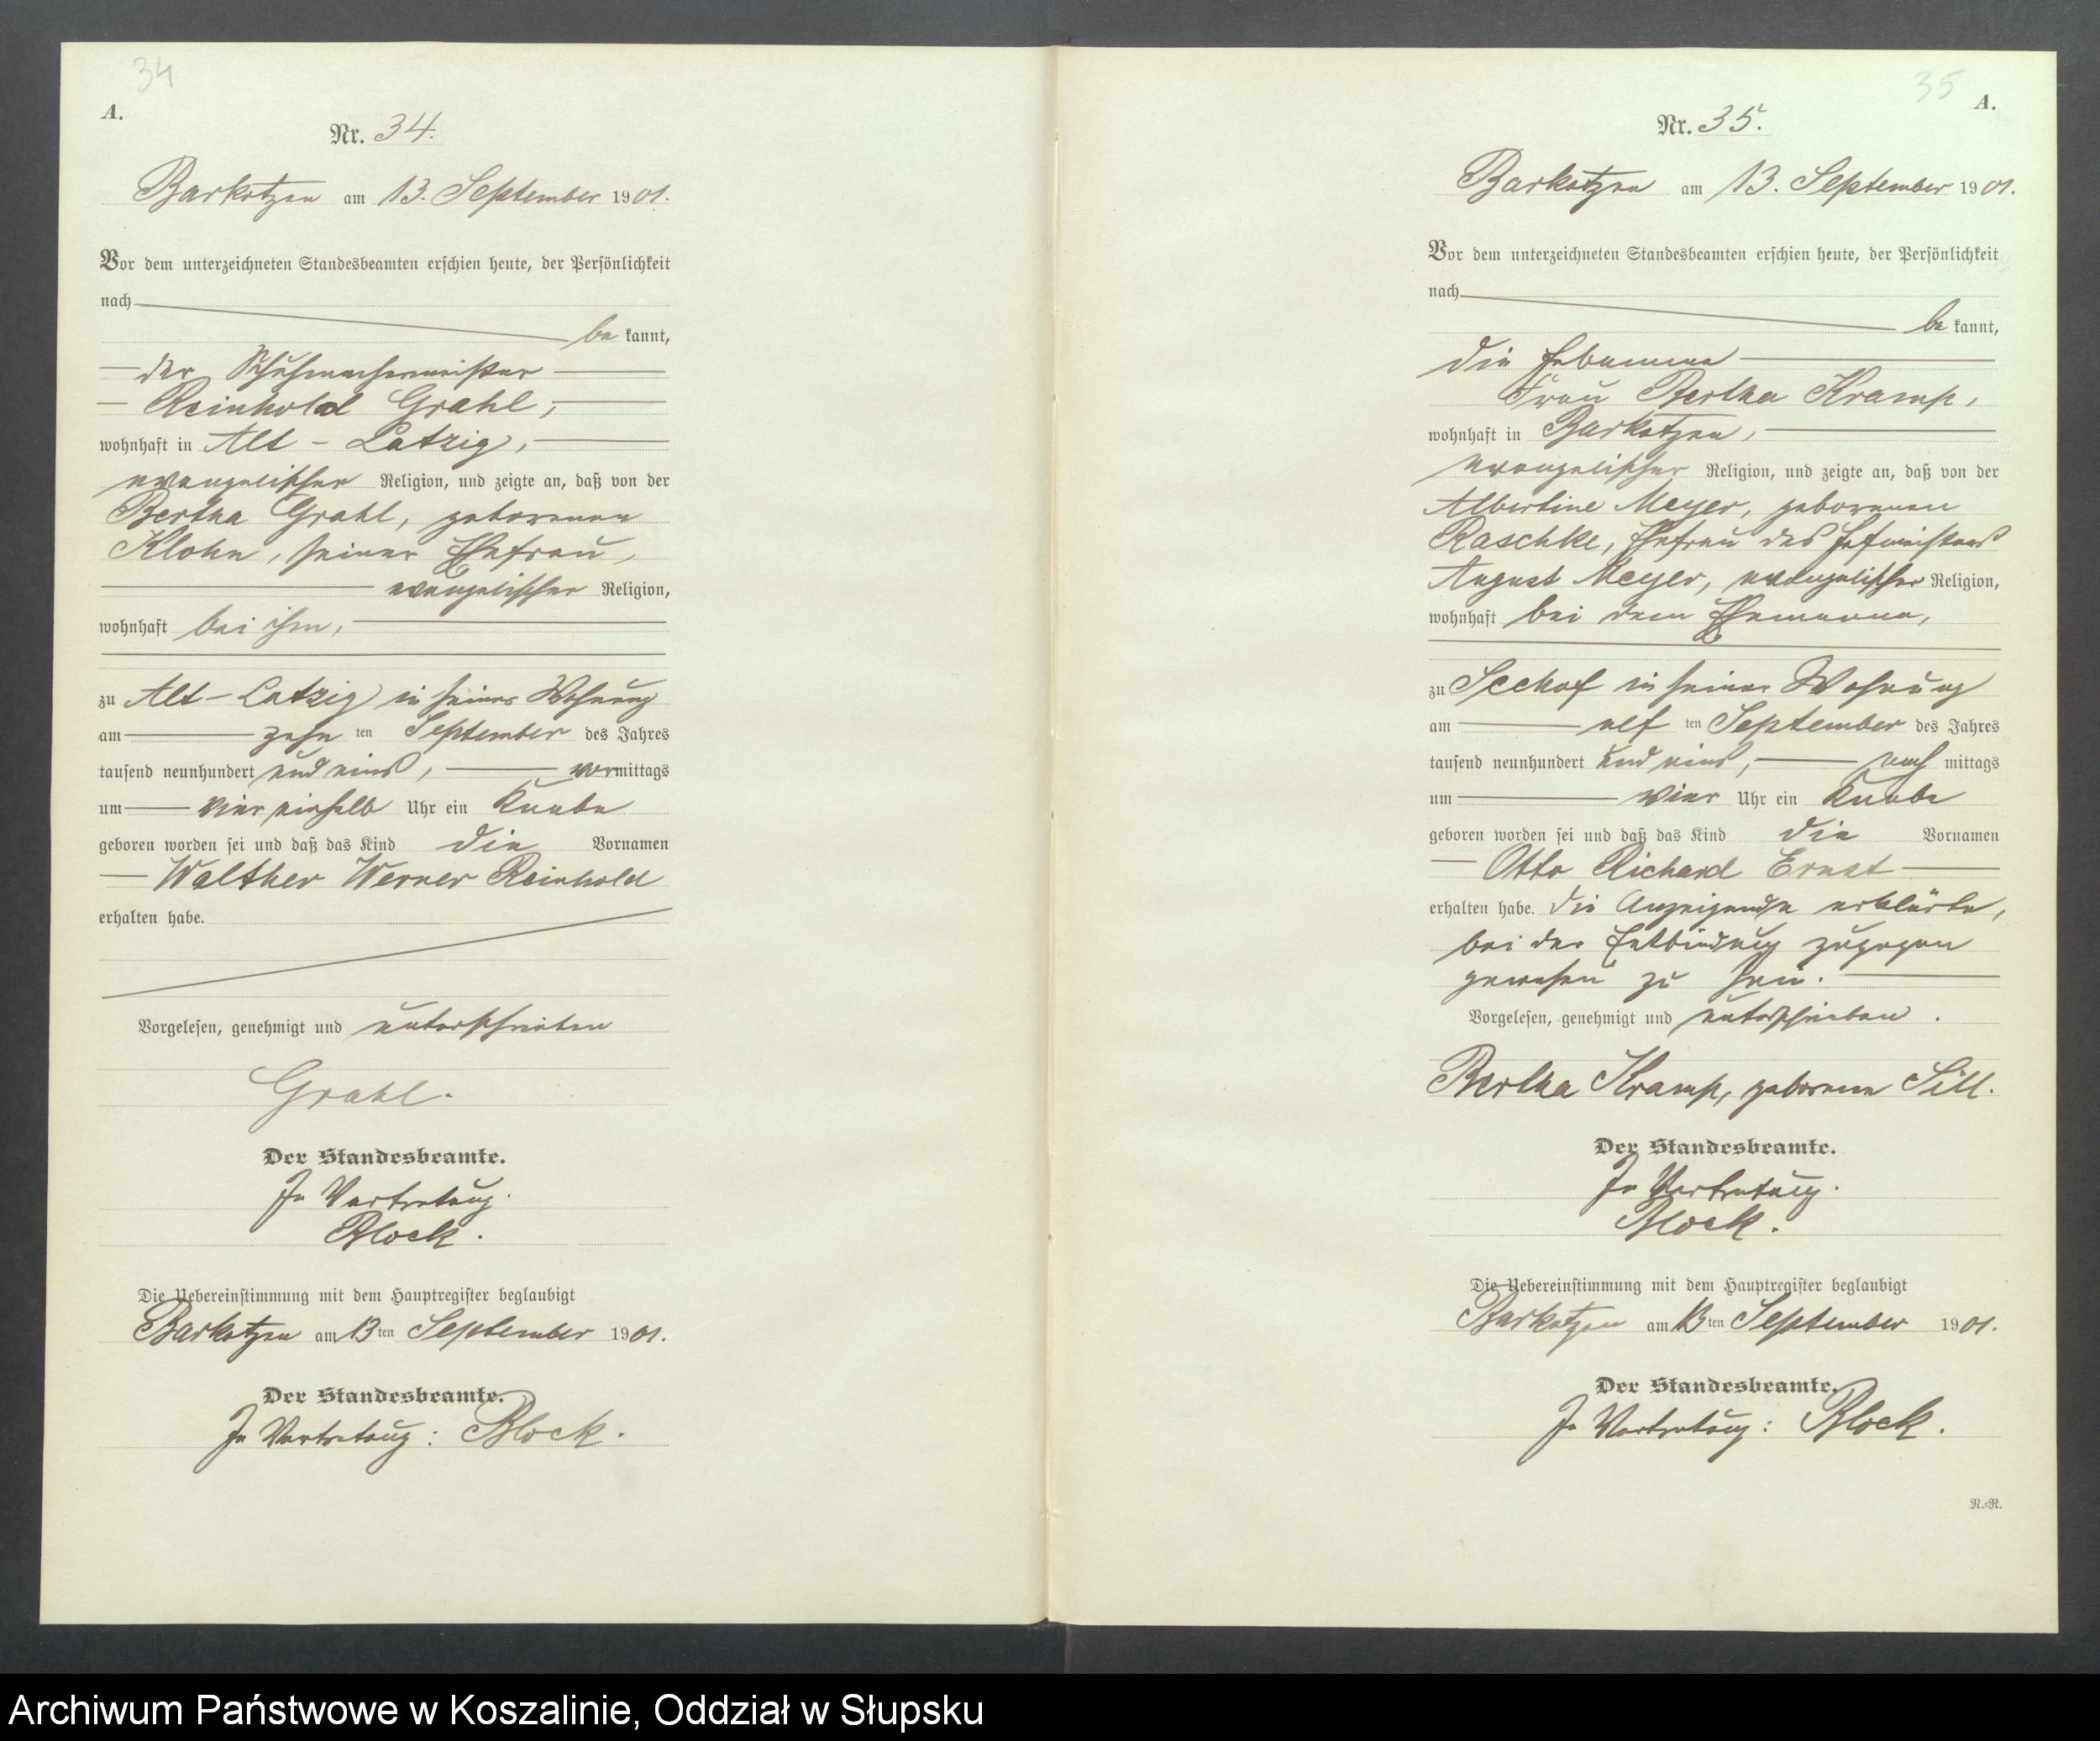 34
A.
Nr. 34.
Barkotzen am 13. September 1901.
Vor dem unterzeichneten Standesbeamten erschien heute, der Persönlichkeit
nach
be kannt,
der Schuhmachermeister
Reinhold Grahl,
wohnhaft in Alt-Latzig,
evangelischer Religion, und zeigte an, daß von der
Bertha Grahl, geborenen
Klohn, seiner Ehefrau,
evangelischer Religion,
wohnhaft bei ihm,
zu Alt-Latzig in seiner Wohnung
am zehn ten September des Jahres
tausend neunhundert und eins, vormittags
um vier einhalb Uhr ein Knabe
geboren worden sei und daß das Kind die Vornamen
Walther Werner Reinhold
erhalten habe.
Vorgelesen, genehmigt und unterschrieben
Grahl.
Der Standesbeamte.
In Vertretung.
Block.
Die Uebereinstimmung mit dem Hauptregister beglaubigt
Barkotzen am 13ten September 1901.
Der Standesbeamte.
In Vertretung: Block.
35
A.
Nr. 35.
Barkotzen am 13. September 1901.
Vor dem unterzeichneten Standesbeamten erschien heute, der Persönlichkeit
nach
be kannt,
die Hebamme
Frau Bertha Kramp,
wohnhaft in Barkotzen,
evangelischer Religion, und zeigte an, daß von der
Albertine Meyer, geborenen
Raschke, Ehefrau des Hofmeisters
August Meyer, evangelischer Religion,
wohnhaft bei dem Ehemanne,
zu Seehof in seiner Wohnung
am elf ten September des Jahres
tausend neunhundert und eins, nach mittags
um vier Uhr ein Knabe
geboren worden sei und daß das Kind die Vornamen
Otto Richard Ernst
erhalten habe. Die Anzeigende erklärte,
bei der Entbindung zugegen
gewesen zu sein.
Vorgelesen, genehmigt und unterschrieben.
Bertha Kramp, geborene Sill.
Der Standesbeamte.
In Vertretung.
Block.
Die Uebereinstimmung mit dem Hauptregister beglaubigt
Barkotzen am 13ten September 1901.
Der Standesbeamte.
In Vertretung: Block.
N.=N.
Archiwum Państwowe w Koszalinie, Oddział w Słupsku